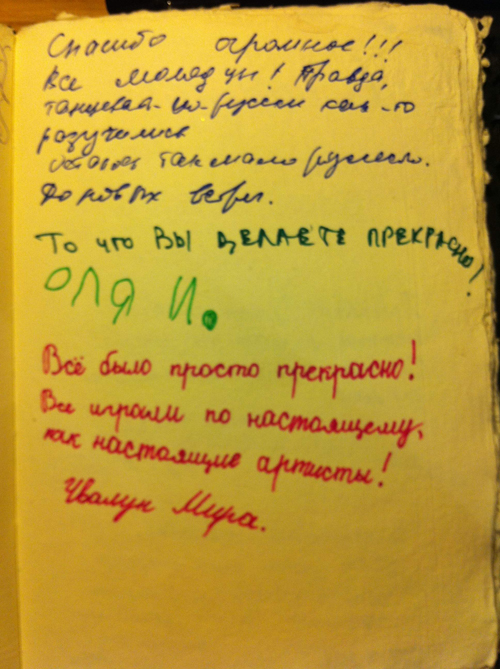 Спасибо огромное!!!
Все молодцы! Правда,
танцевать по-русски как-то
разучились
так мало русского.
До новых встреч.
То что вы делаете прекрасно!
Оля И.
Всё было просто прекрасно!
Вы играли по настоящему,
как настоящие артисты!
Увалук Мира.